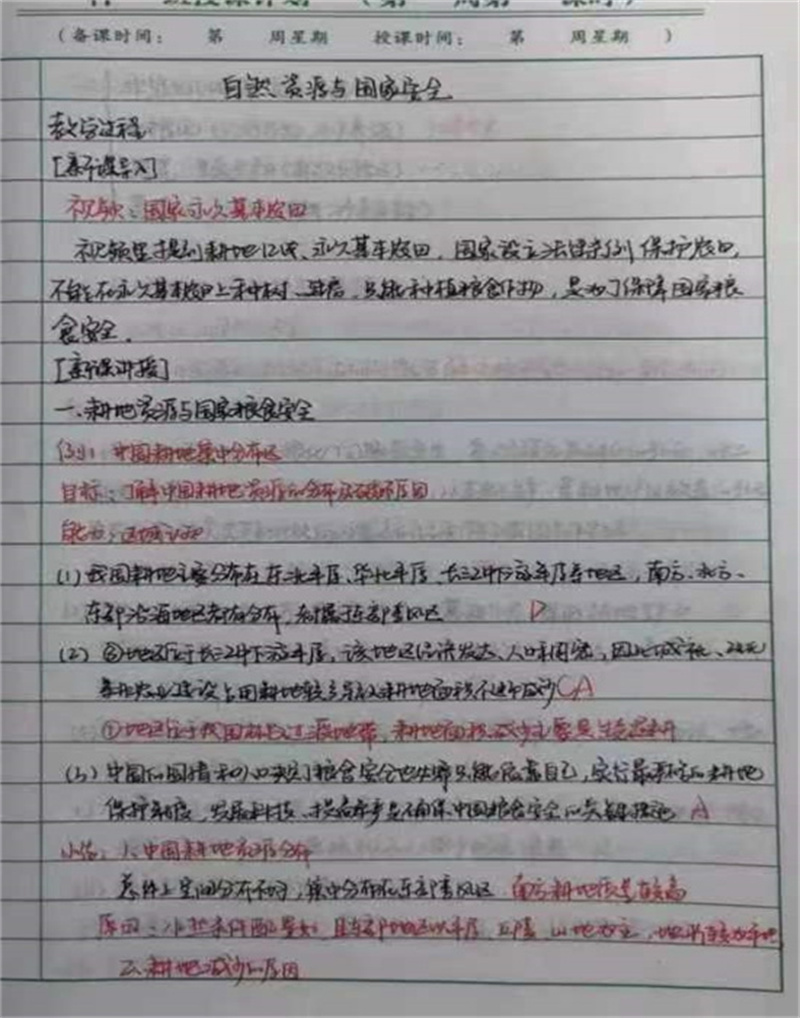 班授课计划 (第 周第 课时)
(备课时间: 第 周星期 授课时间: 第 周星期 )
自然资源与国家安全
教学过程
[新课导入]
视频:国家永久基本农田
视频里提到耕地红线、永久基本农田,国家设立法律条例保护农田,
不能在永久基本农田上种树、建房,只能种植粮食作物,是为了保障国家粮
食安全.
[新课讲授]
一、耕地资源与国家粮食安全
例1:中国耕地集中分布区
目标:了解中国耕地资源的分布及破坏原因
能力:区域认知
(1) 我国耕地主要分布在东北平原、华北平原、长江中下游平原等地区,南方、北方、
东部沿海地区都有分布,都属于东部季风区 D
(2) ④地位于长江中下游平原,该地区经济发达、人口稠密,因此城镇、
非农业建设占用耕地较多导致耕地面积不断减少 CA
①地区位于我国 过渡地带,耕地面积减少主要是生态退耕
(3) 中国的国情和 决定了粮食安全也必须只能依靠自己,实行最严格的耕地
保护制度,发展科技、提高单产是确保中国粮食安全的关键措施 A
小结:1、中国耕地资源分布
总体上空间分布不均,集中分布在东部季风区 南方耕地质量较高
原因:水热条件配合最好,且东部地区以平原、丘陵、山地为主,地
2、耕地减少的原因